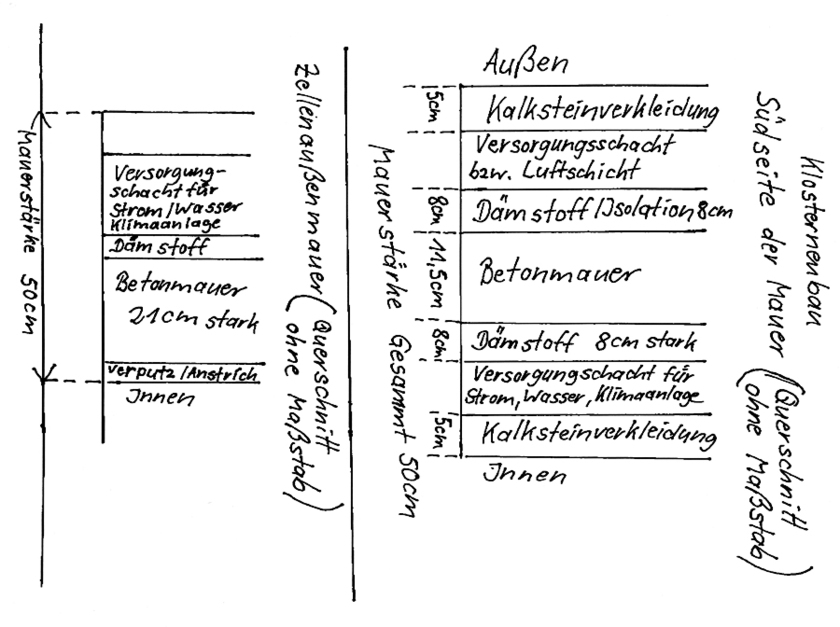 Mauerstärke 50cm
Versorgung-
schacht für
Strom/Wasser
Klimaanlage
Dämstoff
Betonmauer
21cm stark
Verputz/Anstrich
Innen
Zellenaußenmauer (Querschnitt
ohne Maßstab)
Mauerstärke Gesammt 50cm
Außen
5cm
Kalksteinverkleidung
Versorgungsschacht
bzw. Luftschicht
8cm
Dämstoff/Isolation 8cm
11,5cm
Betonmauer
8cm
Dämstoff 8cm stark
Versorgungschacht für
Strom, Wasser, Klimaanlage
5cm
Kalksteinverkleidung
Innen
Klosternenbau
Südseite der Mauer (Querschnitt
ohne Maßstab)